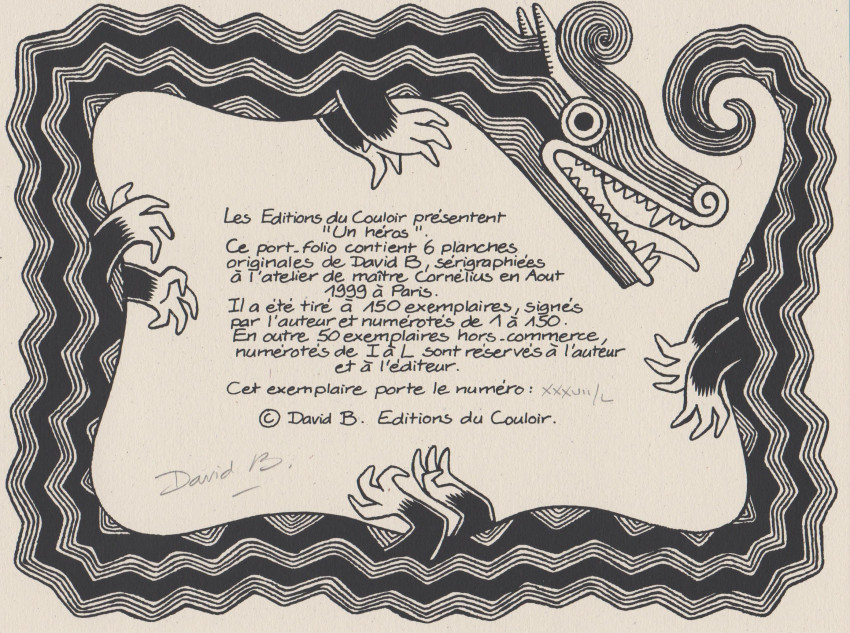 Les Editions du Couloir présentent
"Un héros".
Ce port-folio contient 6 planches
originales de David B, sérigraphiées
à l'atelier de maître Cornélius en Aout
1999 à Paris.
Il a été tiré à 150 exemplaires, signés
par l'auteur et numérotés de 1 à 150.
En outre 50 exemplaires hors-commerce,
numérotés de I à L sont réservés à l'auteur
et à l'éditeur.
Cet exemplaire porte le numéro : XXXVII/L
© David B. Editions du Couloir.
David B.